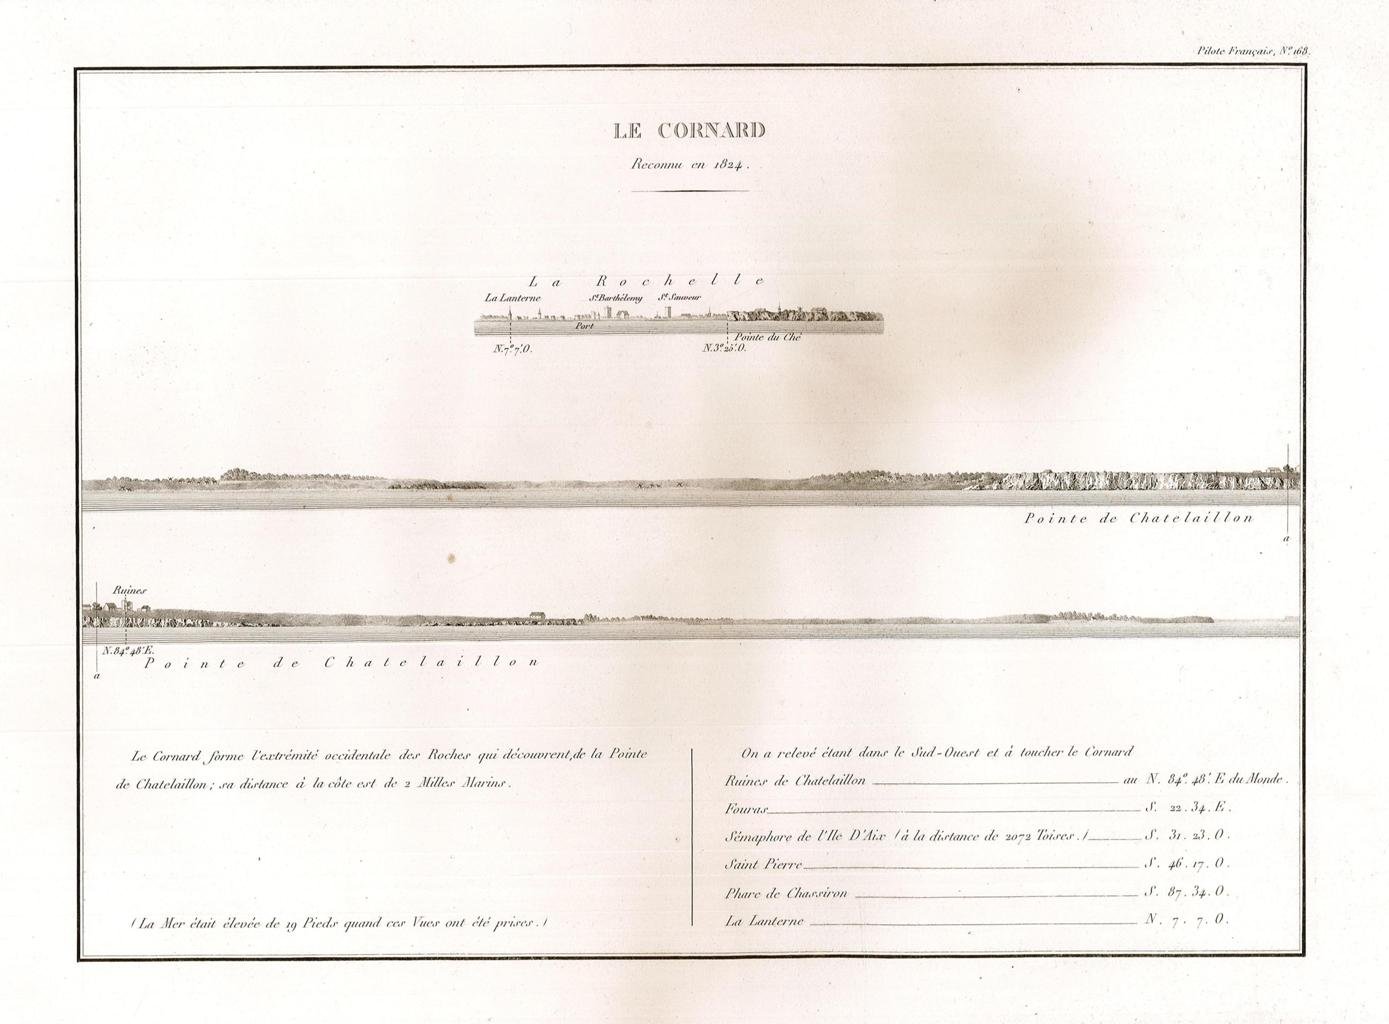 Pilote Français, N.º 168.
LE CORNARD
Reconnu en 1824.
La Rochelle
La Lanterne St. Barthélemy St. Sauveur
Port
Pointe du Ché
N.7º7'.O. N.3º25'.O.
Pointe de Chatelaillon
a
Ruines
N.84º48'E.
Pointe de Chatelaillon
a
Le Cornard forme l'extrémité occidentale des Roches qui découvrent, de la Pointe
de Chatelaillon ; sa distance à la côte est de 2 Milles Marins.
(La Mer était élevée de 19 Pieds quand ces Vues ont été prises.)
On a relevé étant dans le Sud-Ouest et à toucher le Cornard
Ruines de Chatelaillon au N. 84º. 48'. E du Monde.
Fouras S. 22. 34. E.
Sémaphore de l'Ile D'Aix (à la distance de 2072 Toises.) S. 31. 23. O.
Saint Pierre S. 46. 17. O.
Phare de Chassiron S. 87. 34. O.
La Lanterne N. 7. 7. O.